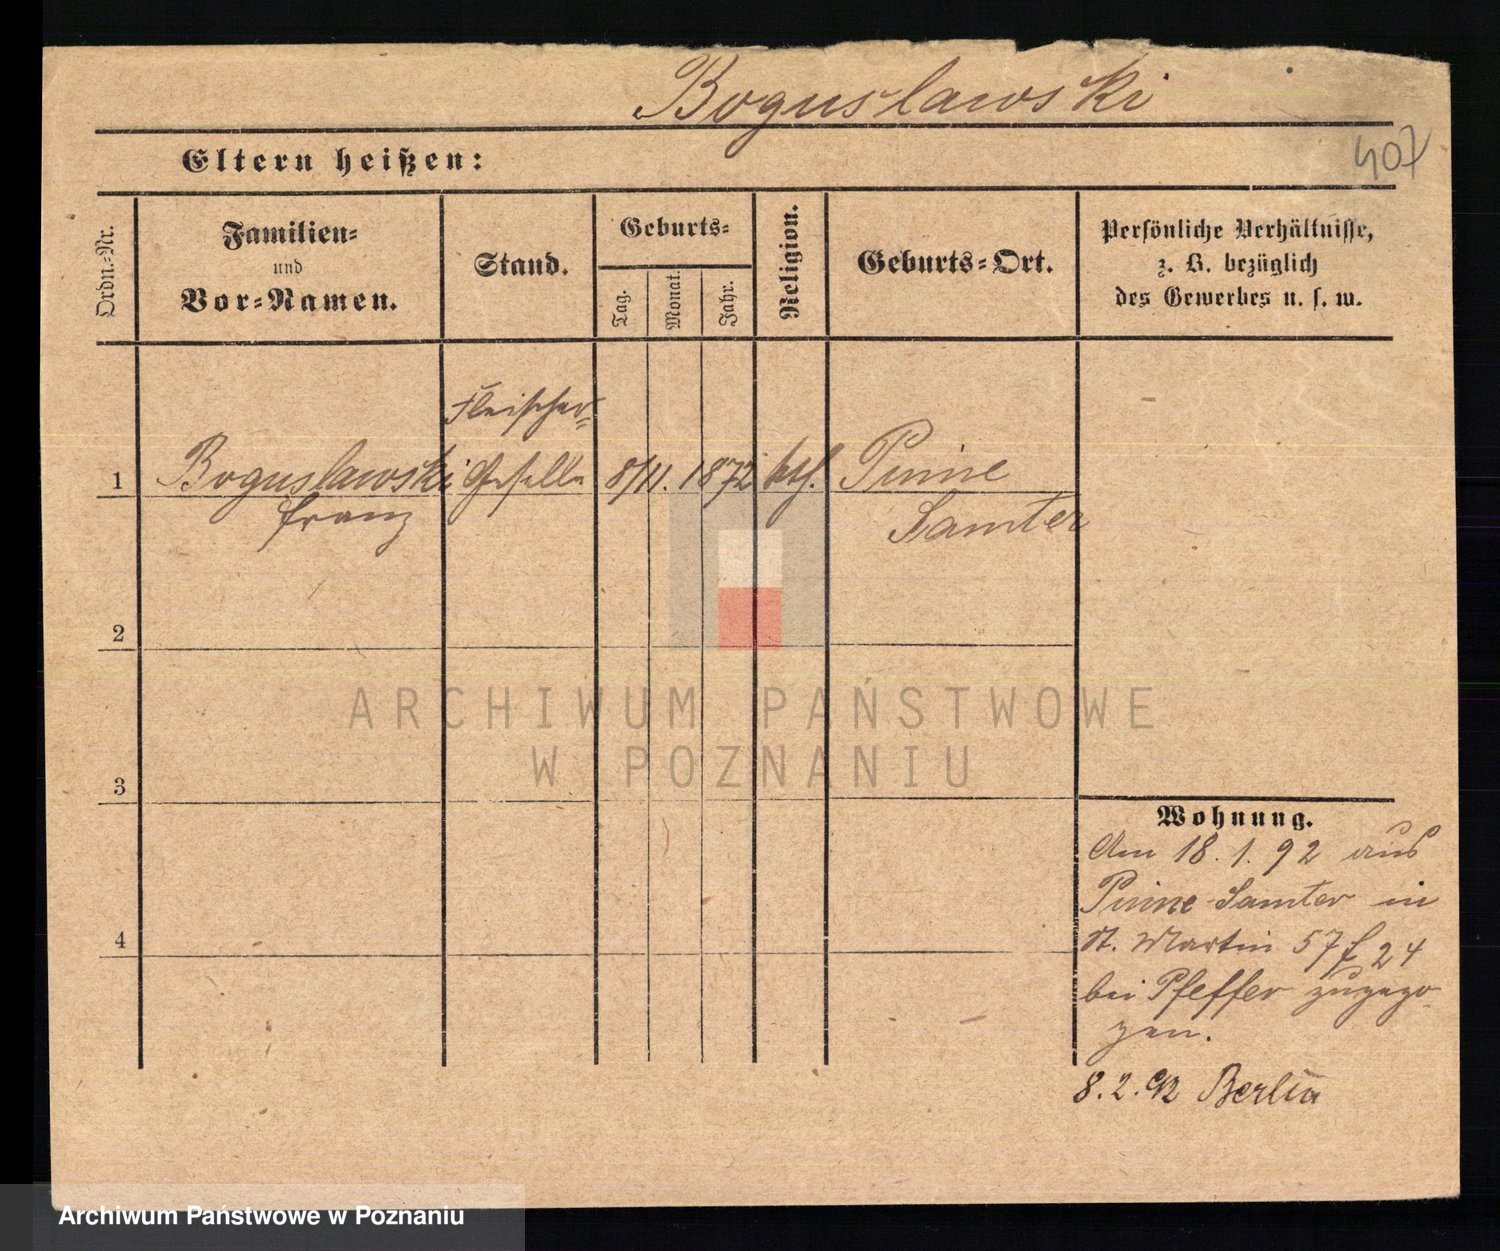 Boguslawski
407
Eltern heißen:
Ordn.-Nr.
Familien-
und
Vor-Namen.
Stand.
Geburts-
Tag.
Monat.
Jahr.
Religion.
Geburts-Ort.
Persönliche Verhältnisse,
z. B. bezüglich
des Gewerbes u. s. w.
Fleischer-
1 Boguslawski Geselle 8/11. 1872 kth. Pinne
Franz Samter
2
3
4
Wohnung.
Am 18.1.92 aus
Pinne-Samter in
St. Martin 57 24
bei Pfeffer zugezo-
gen.
8.2.92 Berlin
ARCHIWUM PAŃSTWOWE
W POZNANIU
Archiwum Państwowe w Poznaniu